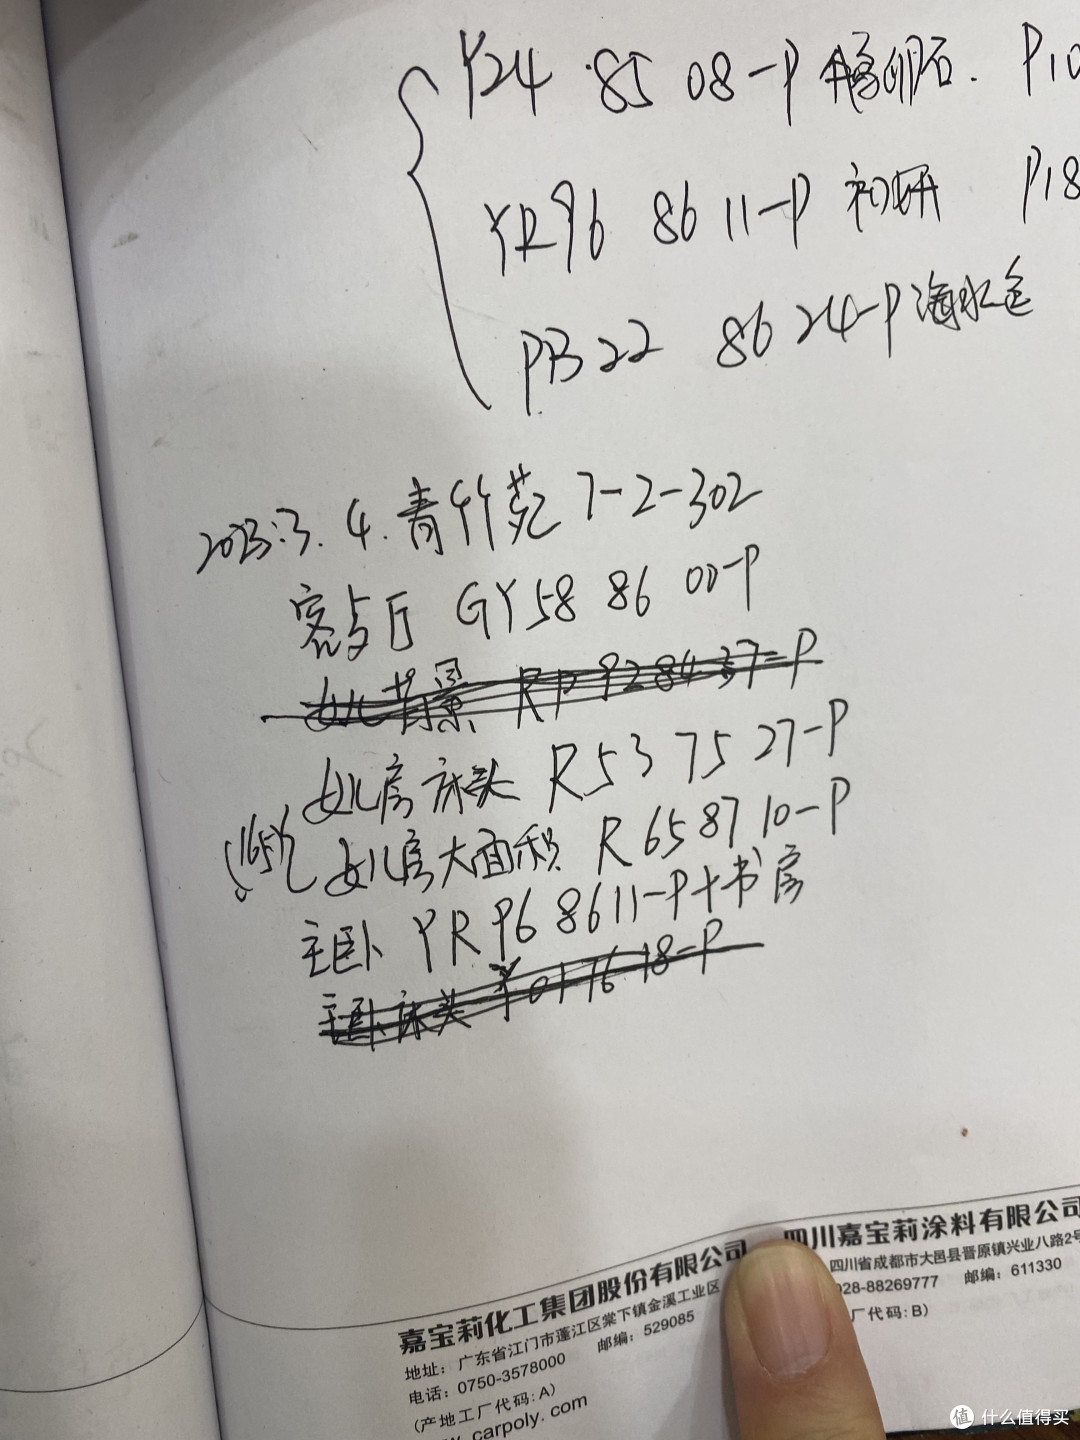 Y24 85 08-P 鹅卵石. P10
YR96 86 11-P 初妍 P18
PB22 86 24-P 海水色
2023.3.4.青竹苑 7-2-302
客与厅 GY58 86 00-P
女儿背景 RP 92 84 37-P
女儿房床头 R53 75 27-P
女儿房大面积 R65 87 10-P
主卧 YR96 86 11-P+书房
主卧床头 Y01 76 18-P
嘉宝莉化工集团股份有限公司
地址: 广东省江门市蓬江区棠下镇金溪工业区
电话: 0750-3578000 邮编: 529085
(产地工厂代码:A)
carpoly.com
四川嘉宝莉涂料有限公司
四川省成都市大邑县晋原镇兴业八路2号
028-88269777 邮编: 611330
厂代码:B)
值 什么值得买